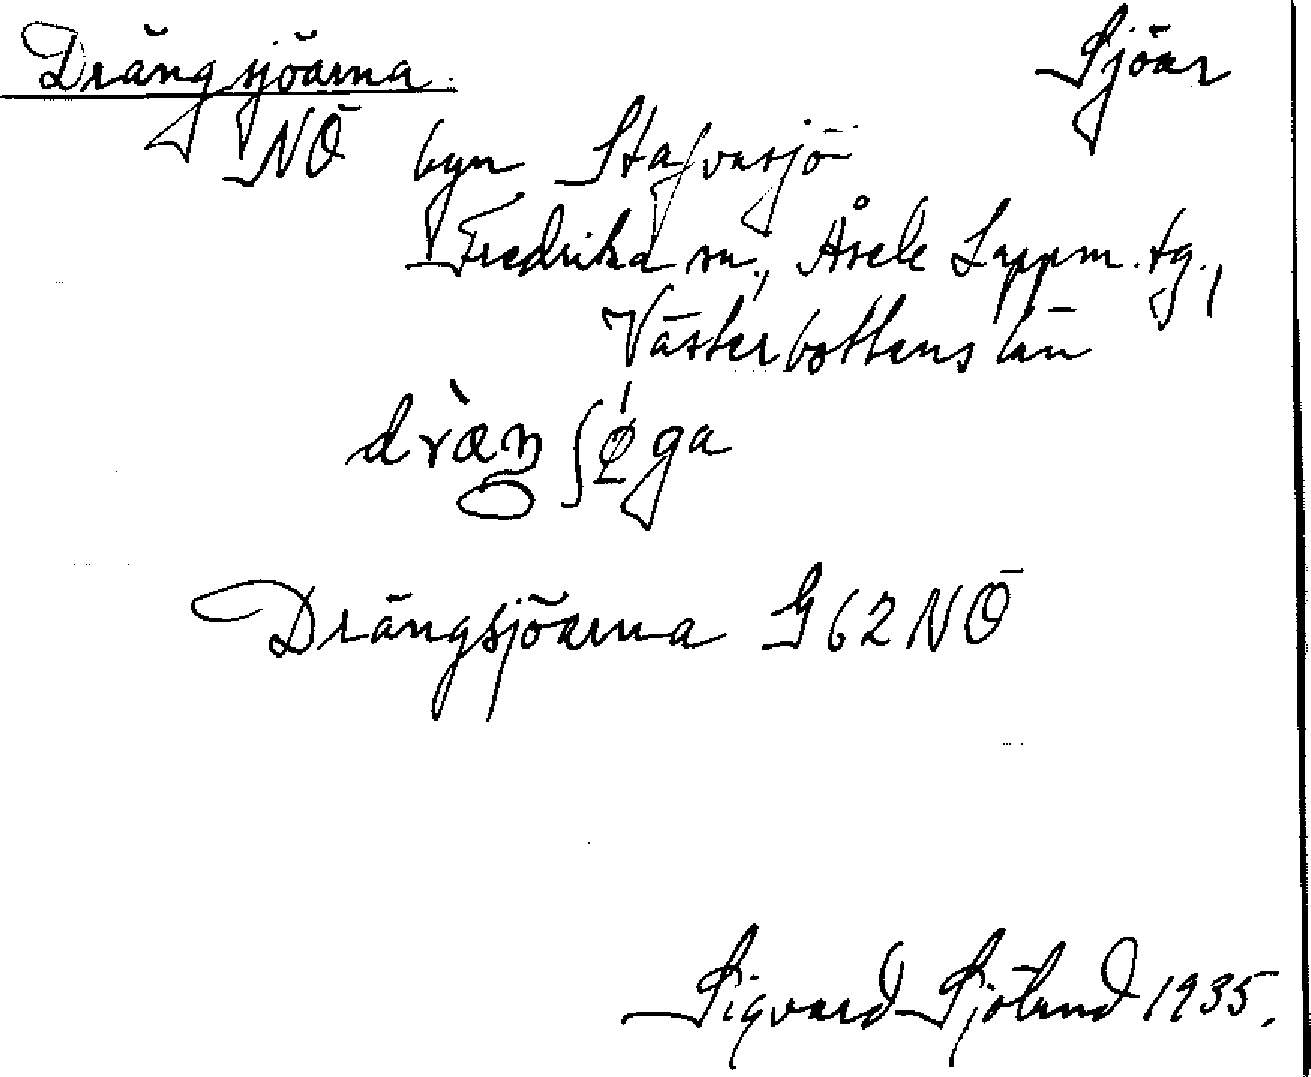 Drängsjöarna. Sjöar
NÖ byn Stafvasjö
Fredrika sn., Åsele Lappm. tg.,
Västerbottens län
dræ̀ŋ ʃø̀ga
Drängsjöarna G62NÖ
Sigvard Sjölund 1935.